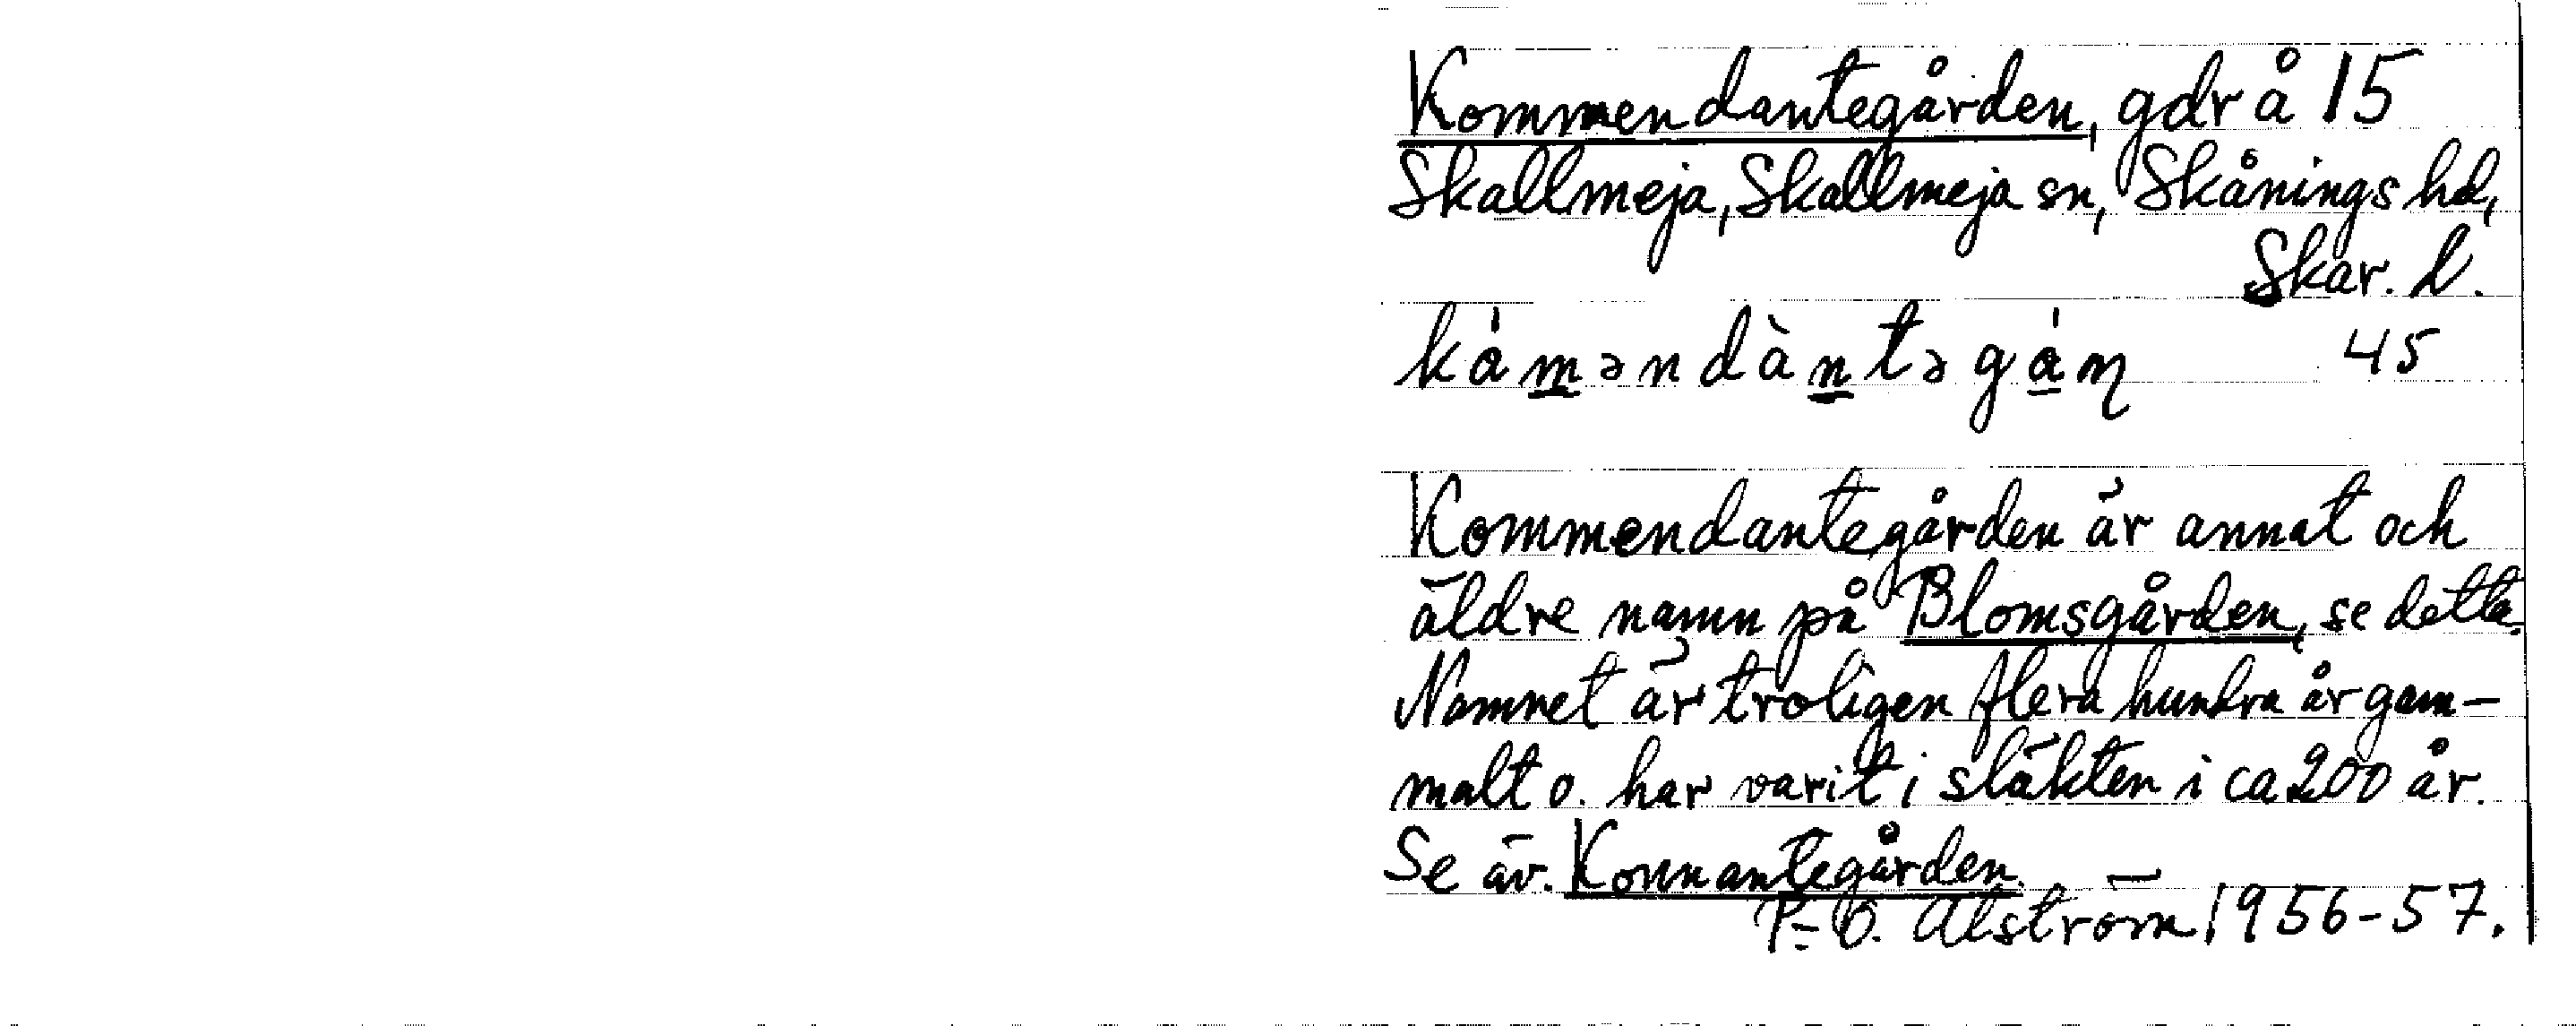 Kommendantegården, gdr å 15
Skallmeja, Skallmeja sn, Skånings hd,
Skar. l.
kåməndàntəgån 45
Kommendantegården är annat och
äldre namn på Blomsgården, se detta.
Namnet är troligen flera hundra år gam-
malt o. har varit i släkten i ca 200 år.
Se äv. Konnantegården.
P.-O. Alström 1956-57.